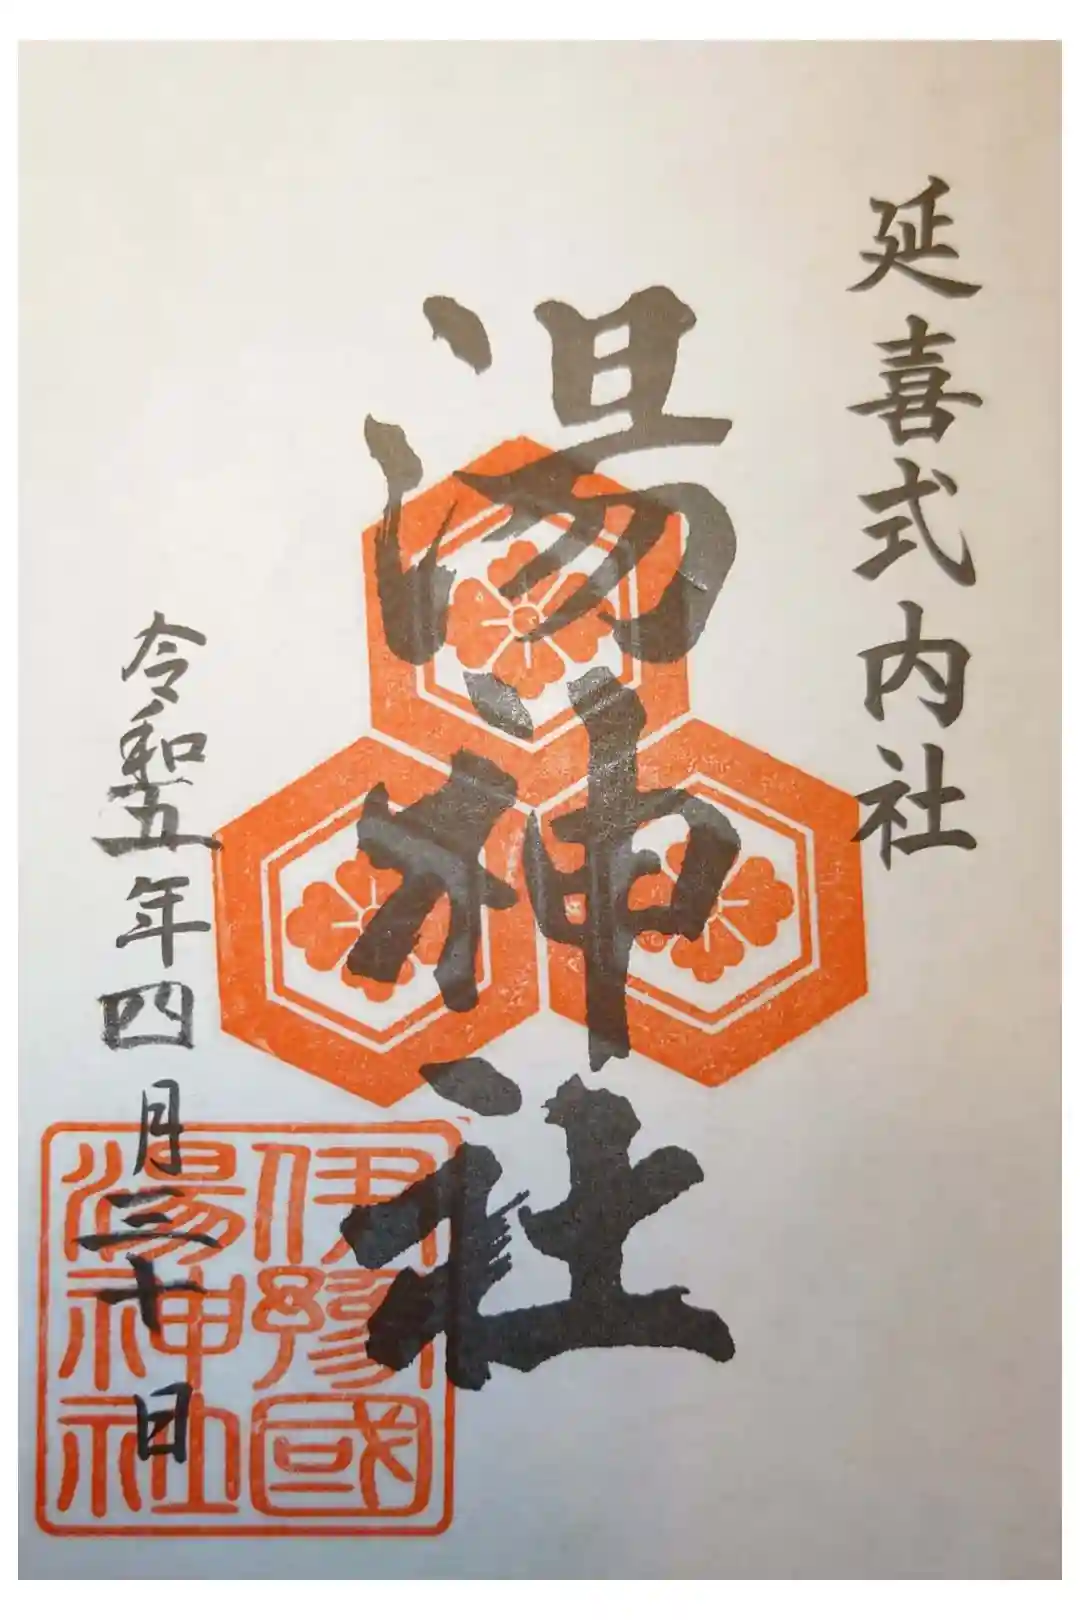 延喜式内社
湯神社
令和五年四月三十日
伊豫國
湯神社